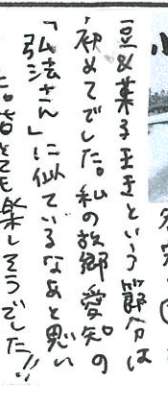 豆&菓子王王という節分は
初めてでした。私の故郷愛知の
「弘法さん」に似ているなあと思い
た。皆とても楽しそうでした!!